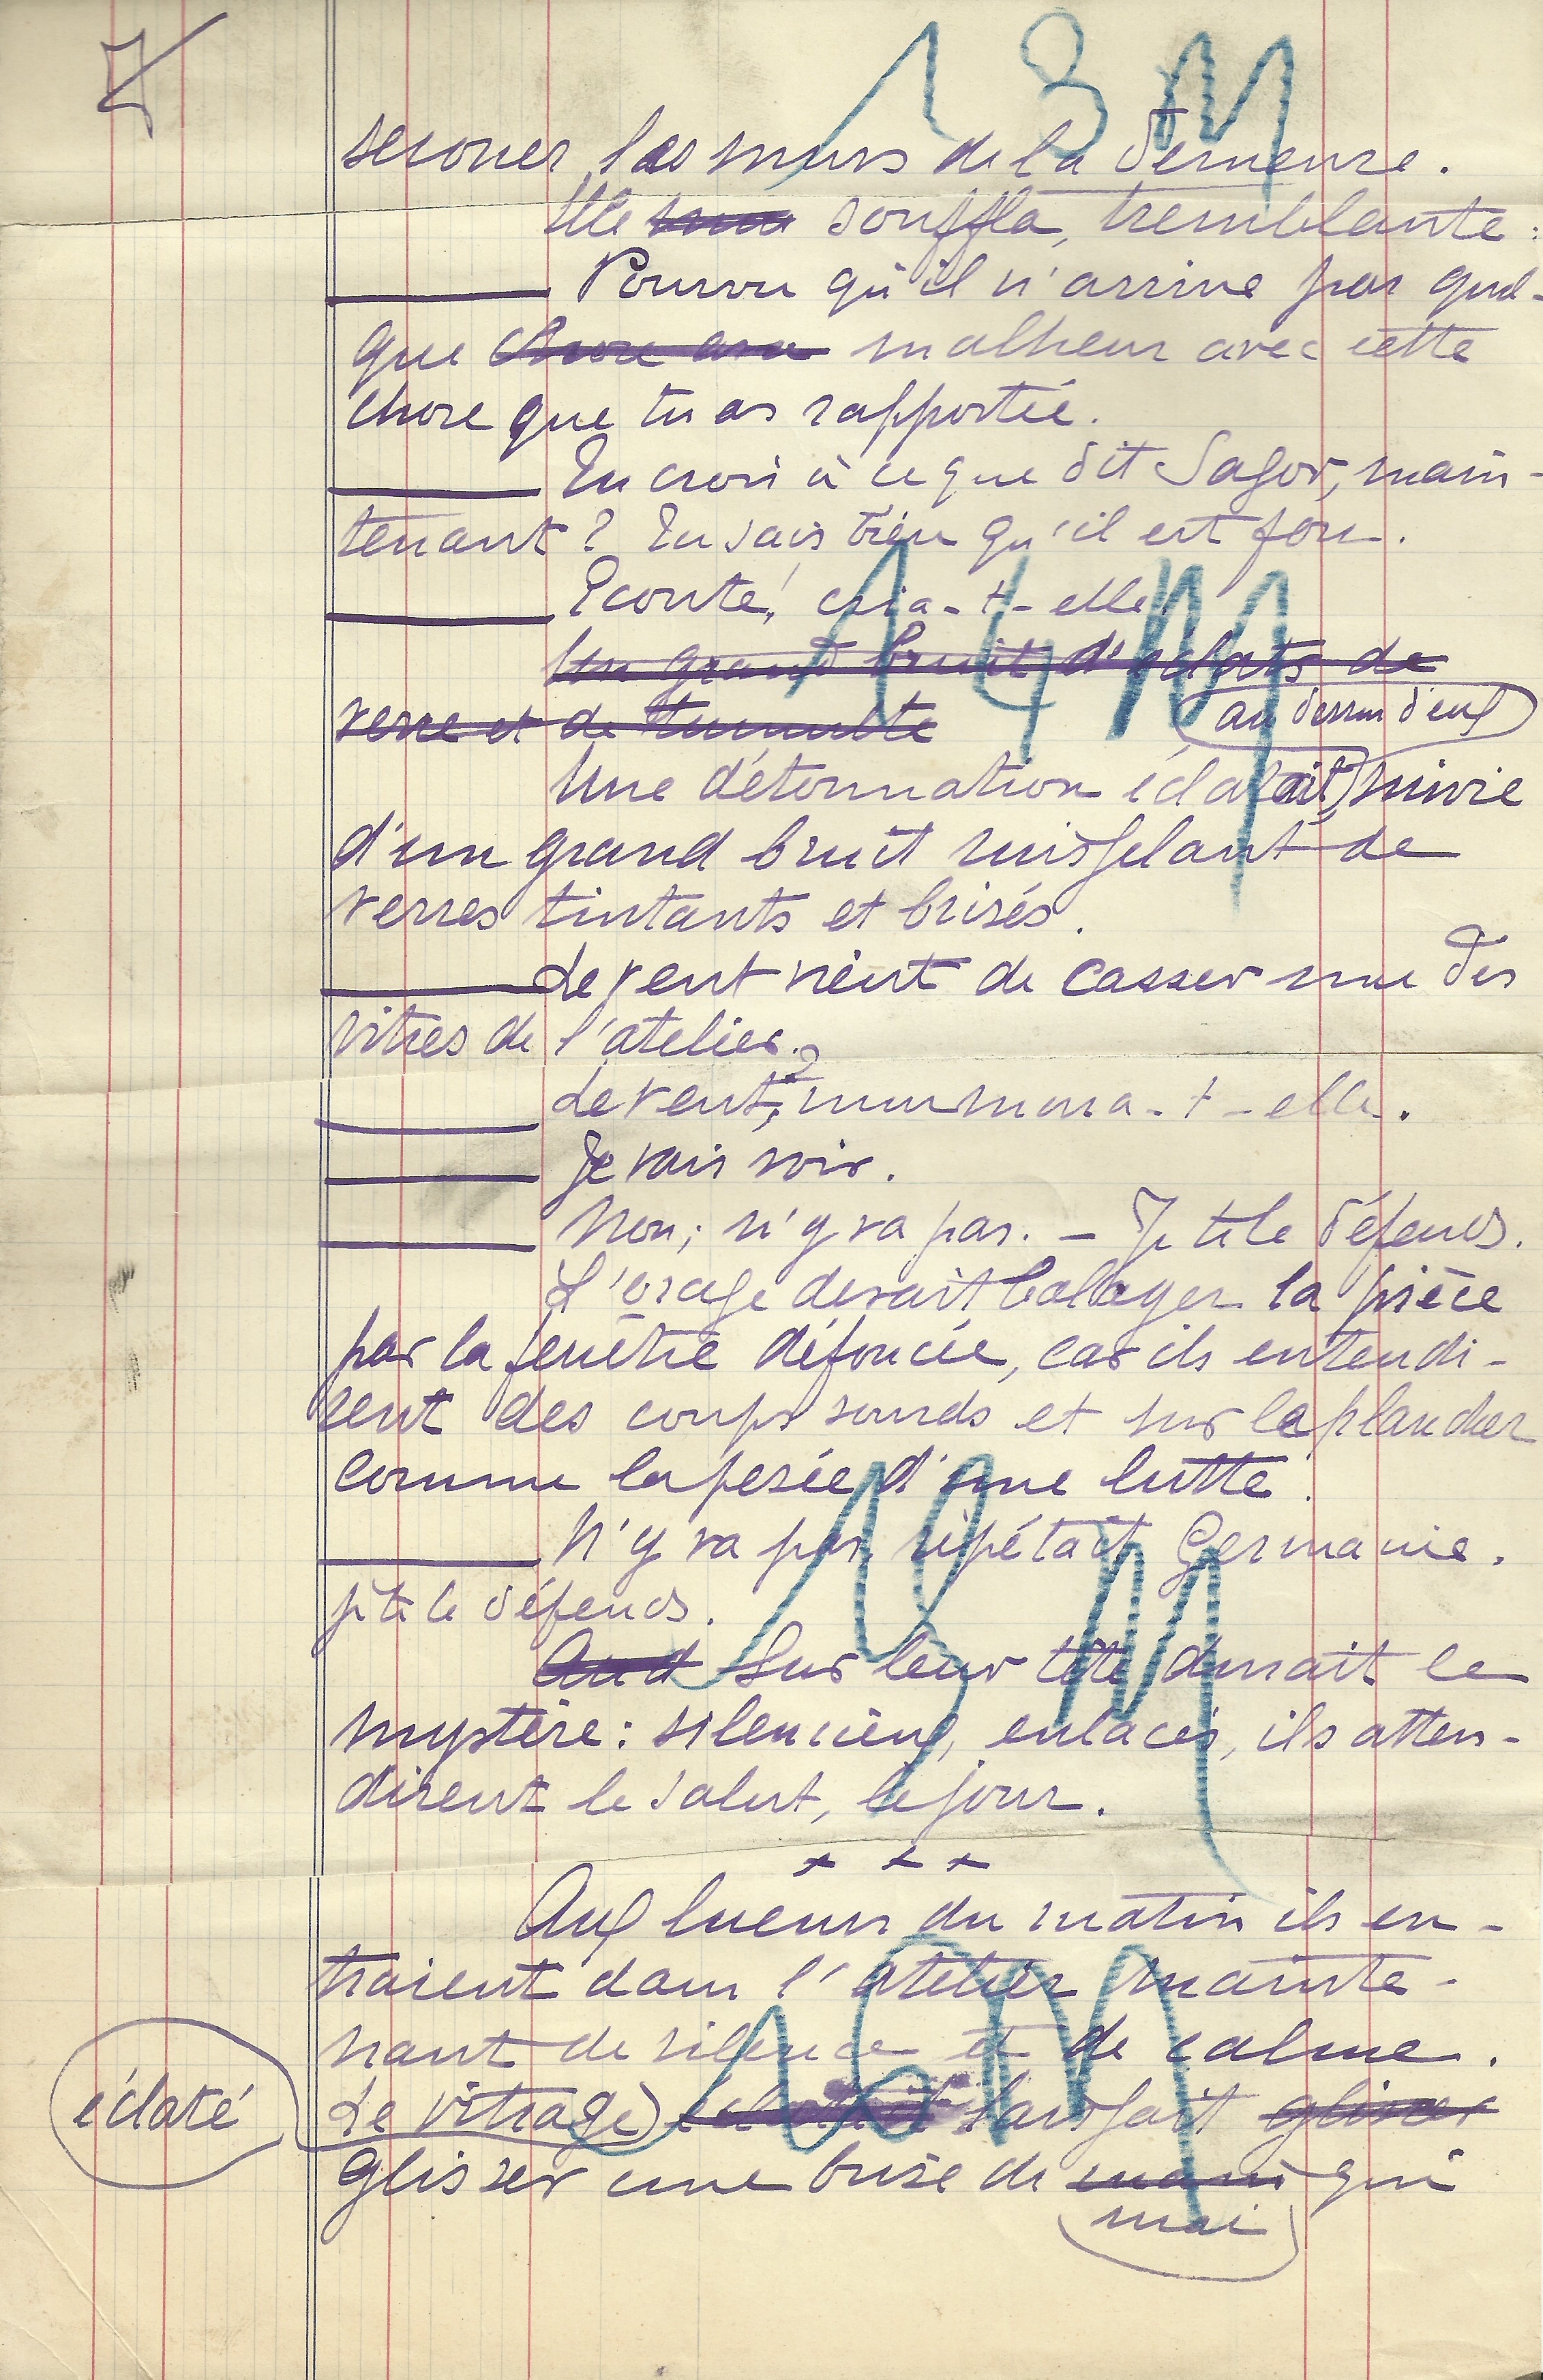 7
13 M
secouer les murs de la demeure.
Elle souffla, tremblante :
— Pourvu qu'il n'arrive pas quel-
que chose malheur avec cette
chose que tu as rapportée.
— Tu crois à ce que dit Sagor, main-
tenant ? Tu sais bien qu'il est fou.
— Ecoute! cria-t-elle.
14 M
Un grand bruit d'eclats de
verre et de tumulte
au dessus d'eux
Une détonnation éclatait, suivie
d'un grand bruit ruisselant de
verres tintants et brisés.
— Le vent vient de casser une des
vitres de l'atelier.
— Le vent ? murmura-t-elle.
— Je vais voir.
— Non ; n'y va pas. — Je te le défends.
L'orage devait balayer la pièce
par la fenêtre défoncée, car ils entendi-
rent des coups sourds et sur le plancher
comme la pesée d'une lutte.
15 M
— N'y va pas, répétait Germaine.
je te le défends.
Sur leur tête durait le
mystère : silencieux, enlacés, ils atten-
dirent le salut, le jour.
+ + +
Aux lueurs du matin ils en-
traient dans l'atelier mainte-
nant de silence et de calme.
16 M
éclaté
Le vitrage éclatait laissait glisser
glisser une brise de qui
mai